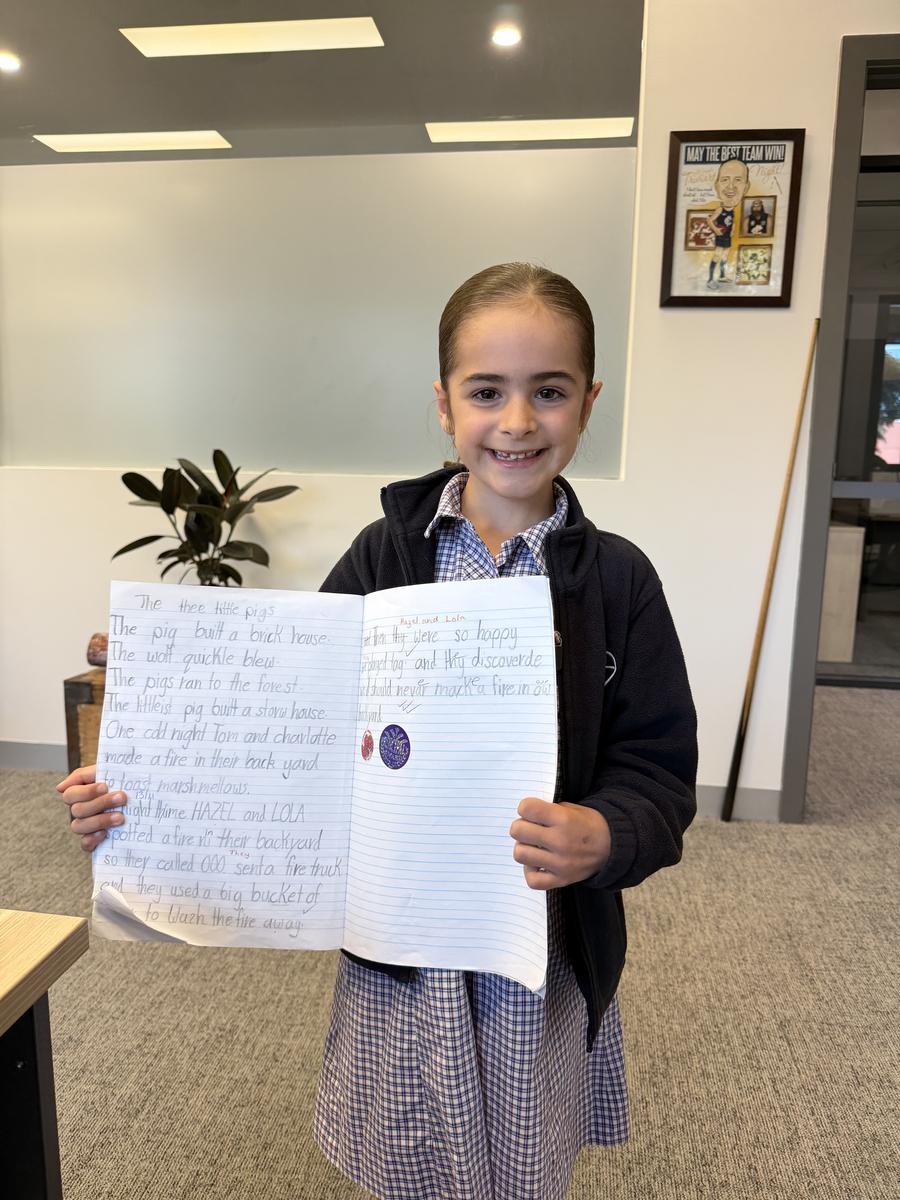 MAY THE BEST TEAM WIN!
The thee tittle pigs
The pig built a brick house.
The wolf quickle blew.
The pigs ran to the forest.
The littleist pig built a storw house.
One cold night Tom and charlotte
made a fire in their back yard
toast marshmellows.
night HAZEL and LOLA
spotted a fire in their backyard
They
so they called 000 sent a fire truck
and they used a big bucket of
to Wazh the fire away.
Hazel and Lola
Then they were so happy
played tag and they discoverde
should never mack a fire in